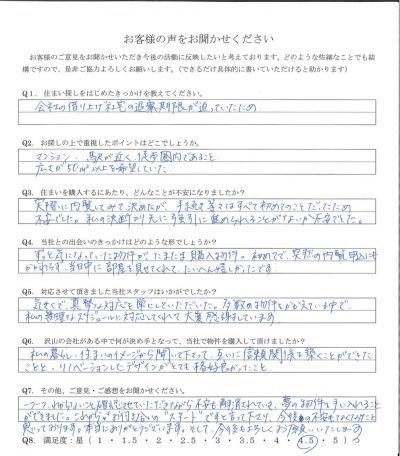 お客様の声をお聞かせください
お客様のご意見をお聞かせいただき今後の活動に反映したいと考えております。どのような些細なことでも結
構ですので、是非ご協力よろしくお願いします。(できるだけ具体的に書いていただけると助かります)
Q1. 住まい探しをはじめたきっかけを教えてください。
会社の借り上げ社宅の退寮期限が迫っていたため
Q2. お探しの上で重視したポイントはどこでしょうか。
マンション、駅が近く、徒歩圏内であること
広さが50㎡以上を希望していた
Q3. 住まいを購入するにあたり、どんなことが不安になりましたか?
実際に内覧してみて決めたが、手続き等ではすべて初めてのことだったため
不安でした。私の決断より先に強引に進められることがないか不安でした。
Q4. 当社との出会いのきっかけはどのような形でしょうか?
ずっと気になっていた物件が、たまたま購入物件。初めてで、突然の内覧申込にも
かかわらず、当日中に部屋を見せてくれて、たいへん嬉しかったです
Q5. 対応させて頂きました当社スタッフはいかがでしたか?
気さくで、真摯な対応を取っていただいた。多数の物件をかかえている中で、
私の無理なスケジュールに対応してくれて大変感謝しています
Q6. 沢山の会社がある中で何が決め手となって、当社で物件を購入して頂けましたか?
私の暮らし・住まいのイメージから聞いて下さって、互いに信頼関係を築くことができた
ことと、リノベーションしたデザインがとても格好良かったこと
Q7. その他、ご意見・ご感想をお聞かせください。
一つ一つ、わからないことを確認させていただきながら不安も解消されていき、夢の物件を手に入れること
ができました。これからがお付き合いの"スタート"ですと言って下さり、今後の不安もなくなったことと
思っております。本当にありがとうございます。そして、今後ともよろしくお願いいたします
Q8. 満足度:是(1・1.5・2・2.5・3・3.5・4・4.5・5)